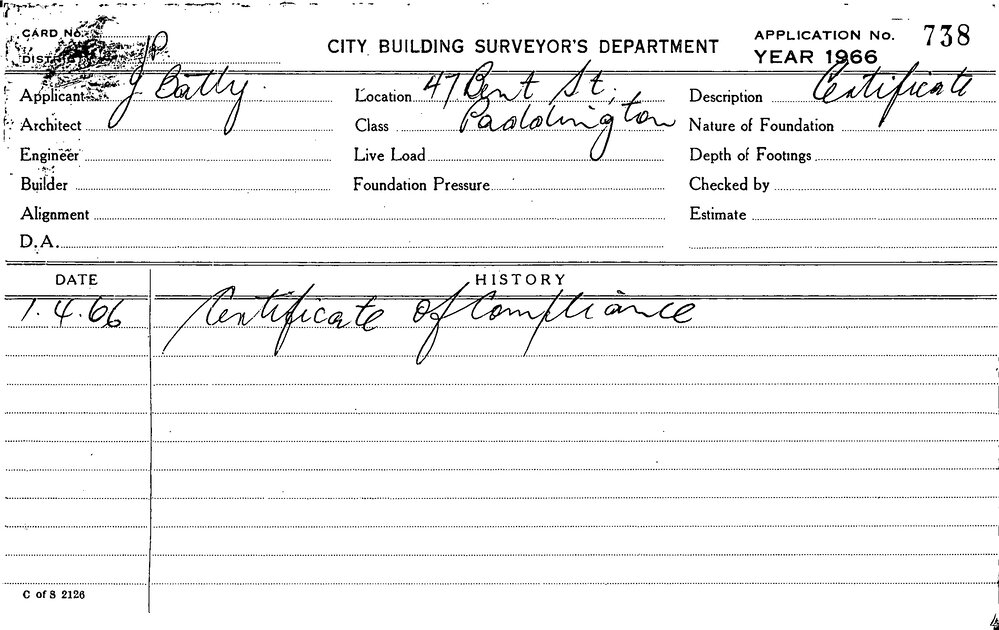 CARD No. P
DISTRICT
CITY BUILDING SURVEYOR'S DEPARTMENT
APPLICATION No. 738
YEAR 1966
Applicant J Batty Location 47 Bent St, Description Certificate
Architect Class Paddington Nature of Foundation
Engineer Live Load Depth of Footings
Builder Foundation Pressure Checked by
Alignment Estimate
D.A.
DATE HISTORY
1.4.66 Certificate of Compliance
C of S 2126